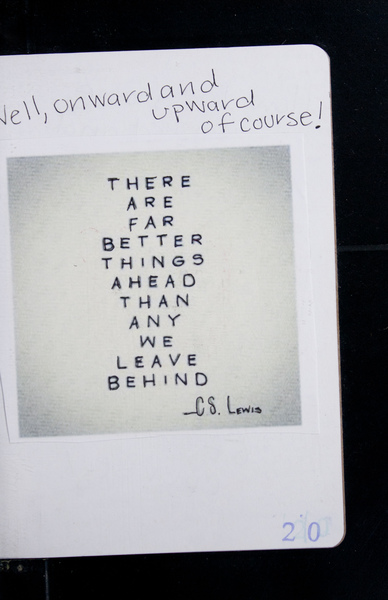 Well, onward and
upward
of course!
THERE
ARE
FAR
BETTER
THINGS
AHEAD
THAN
ANY
WE
LEAVE
BEHIND
—C S. LEWIS
20